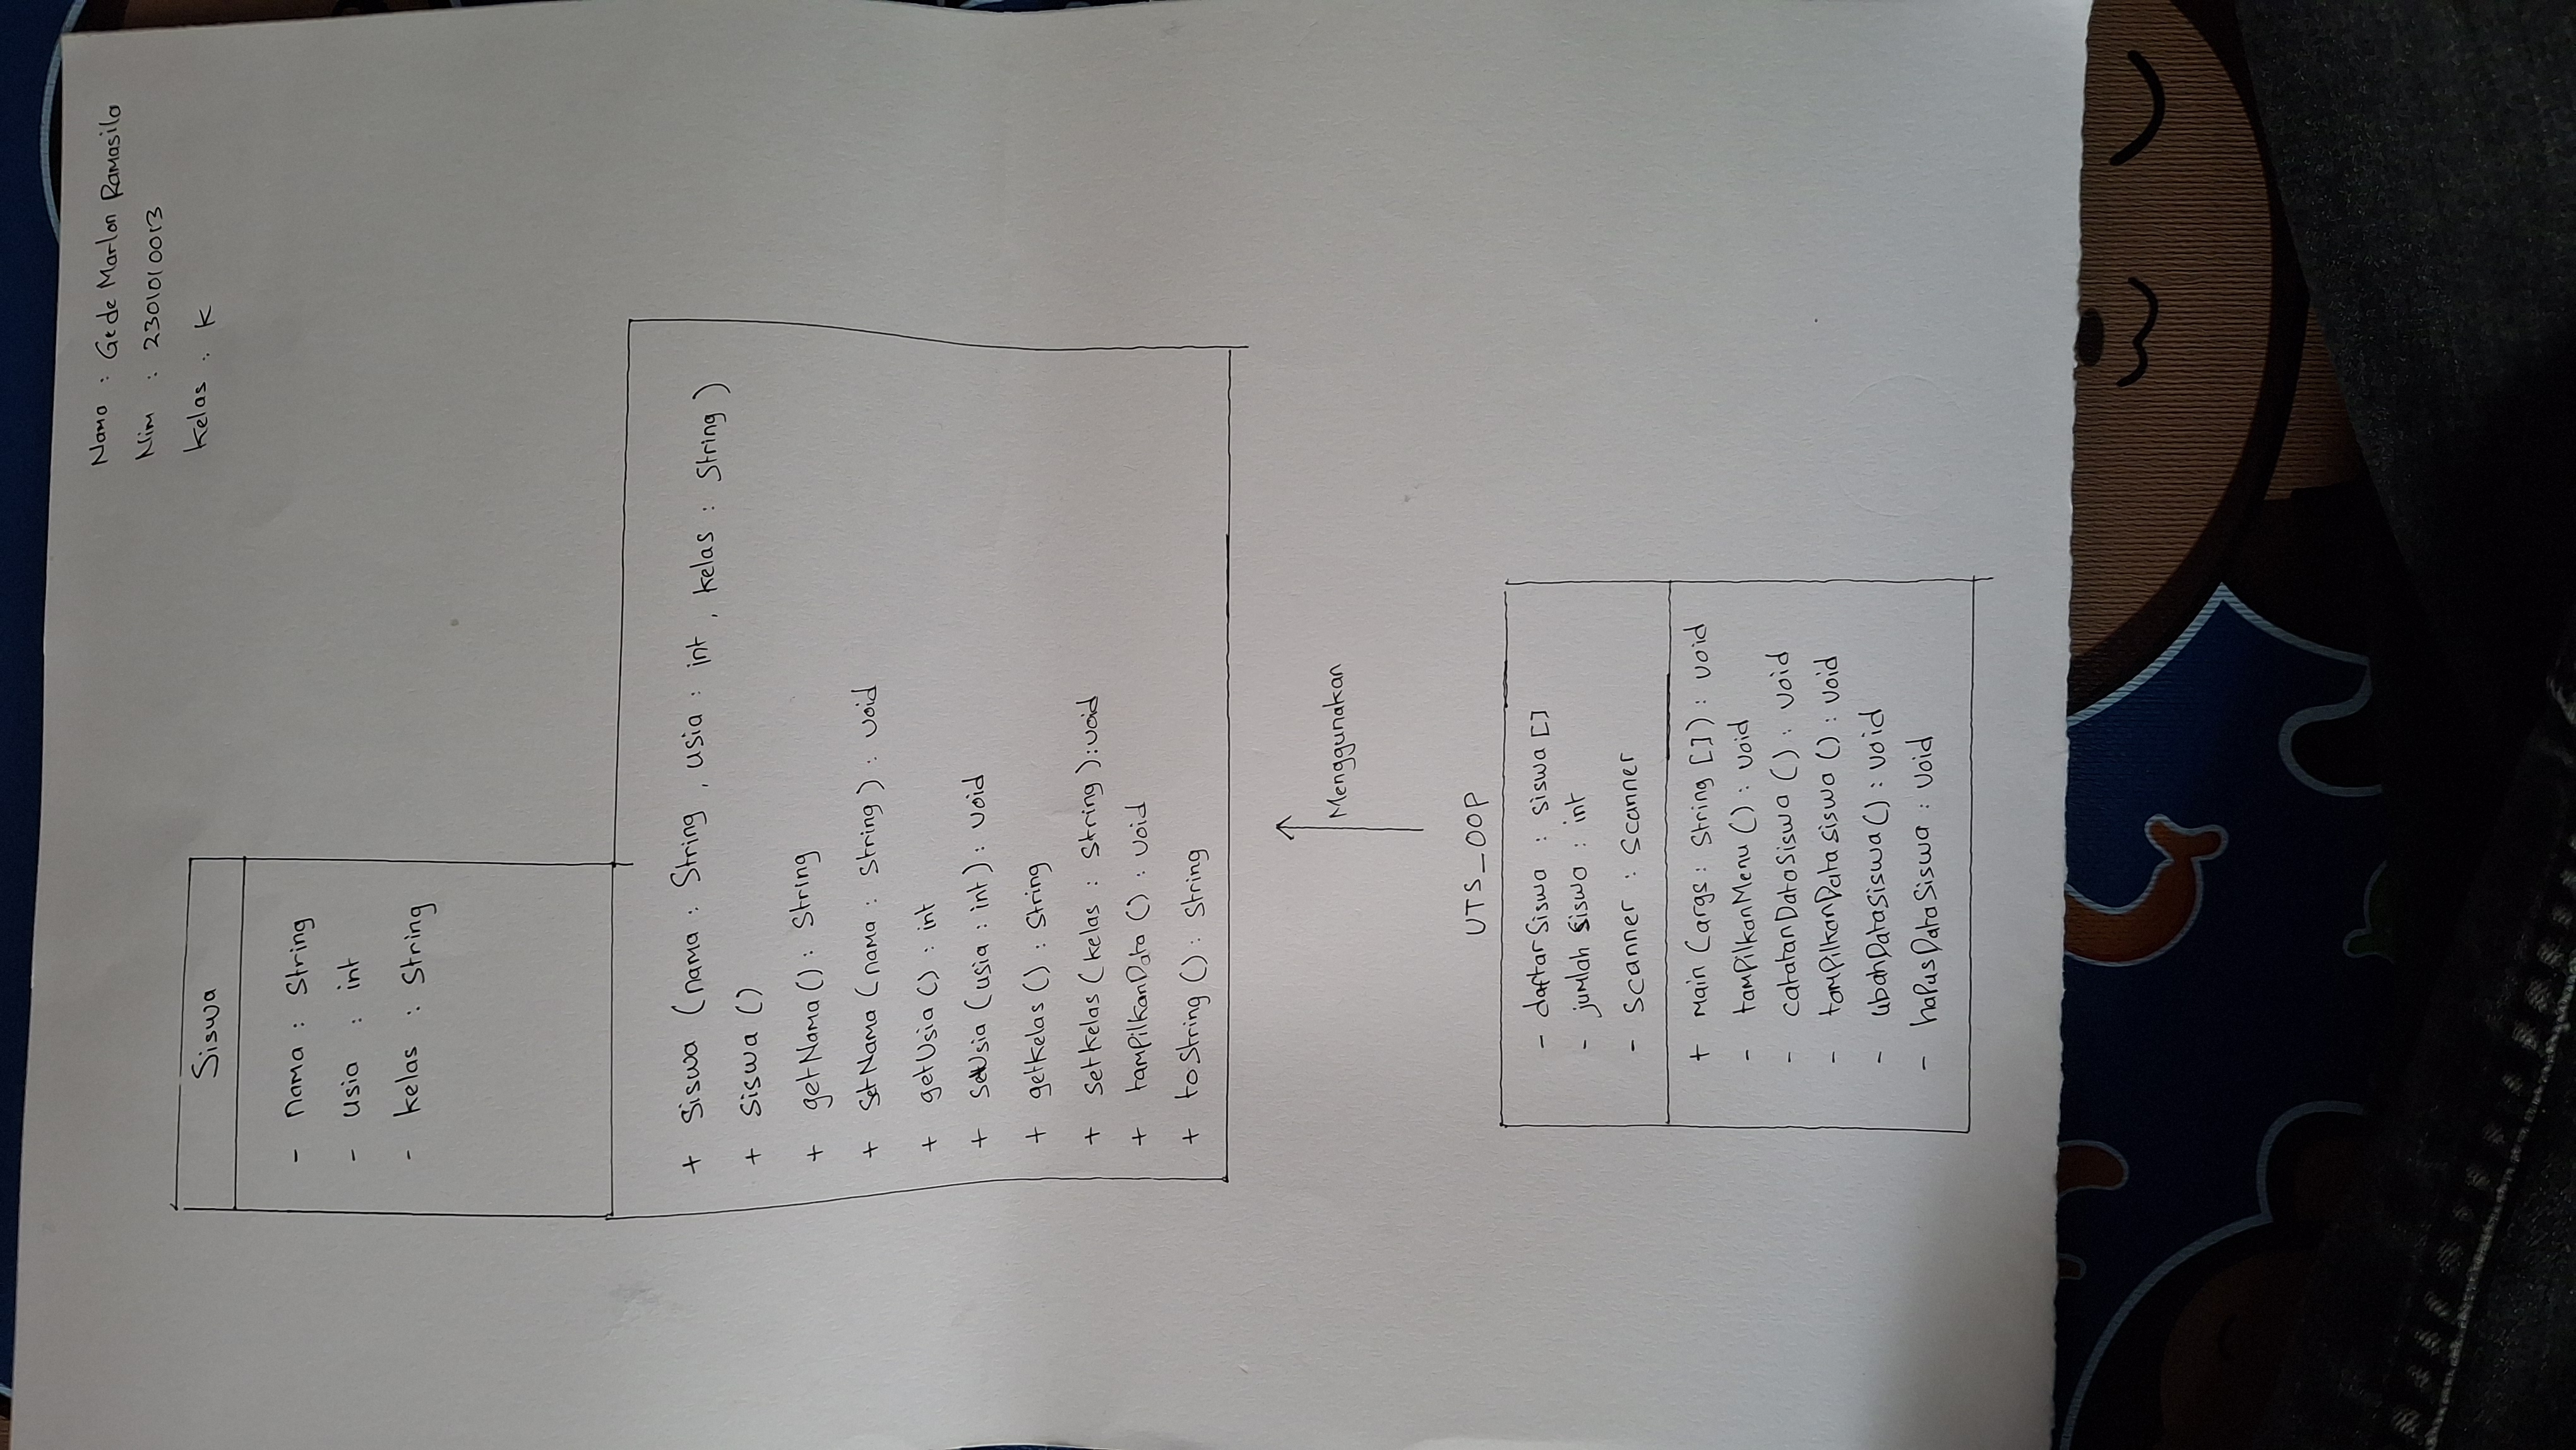 Nama : Gede Marlon Ramasila
Nim : 2301010013
Kelas : K
Siswa
- nama : String
- usia : int
- kelas : String
+ Siswa (nama : String , usia : int , kelas : String )
+ Siswa ()
+ getNama () : String
+ SetNama (nama : String ) : void
+ getUsia () : int
+ SetUsia (usia : int ) : void
+ getKelas () : String
+ SetKelas (kelas : String ) : void
+ tampilkanData () : void
+ toString () : String
Menggunakan
UTS_OOP
- daftarSiswa : Siswa []
- jumlah Siswa : int
- Scanner : Scanner
+ Main (args : String []) : void
- tampilkanMenu () : void
- catatanDataSiswa () : void
- tampilkanDataSiswa () : void
- ubahDataSiswa () : void
- hapusDataSiswa : void